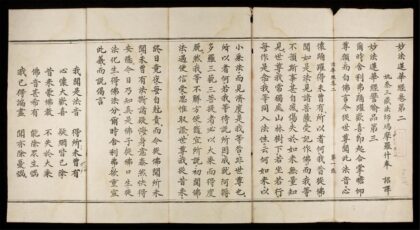 妙法蓮華經卷第二
姚秦三藏法師鳩摩羅什奉 詔譯
妙法蓮華經譬喻品第三
爾時舍利弗踊躍歡喜即起合掌瞻仰
尊顏而白佛言今從世尊聞此法音心
懷踊躍得未曾有所以者何我昔從佛
聞如是法見諸菩薩受記作佛而我等
不預斯事甚自感傷失於如來無量知
見世尊我常獨處山林樹下若坐若行
每作是念我等同入法性云何如來以
小乘法而見濟度是我等咎非世尊也
所以者何若我等待說所因成就阿耨
多羅三藐三菩提者必以大乘而得度
脫然我等不解方便隨宜所說初聞佛
法遇便信受思惟取證世尊我從昔來
終日竟夜每自剋責而今從佛聞所未
聞未曾有法斷諸疑悔身意泰然快得
安隱今日乃知真是佛子從佛口生從
法化生得佛法分爾時舍利弗欲重宣
此義而說偈言
我聞是法音 得所未曾有
心懷大歡喜 疑網皆已除
昔來蒙佛教 不失於大乘
佛音甚希有 能除衆生惱
我已得漏盡 聞亦除憂惱